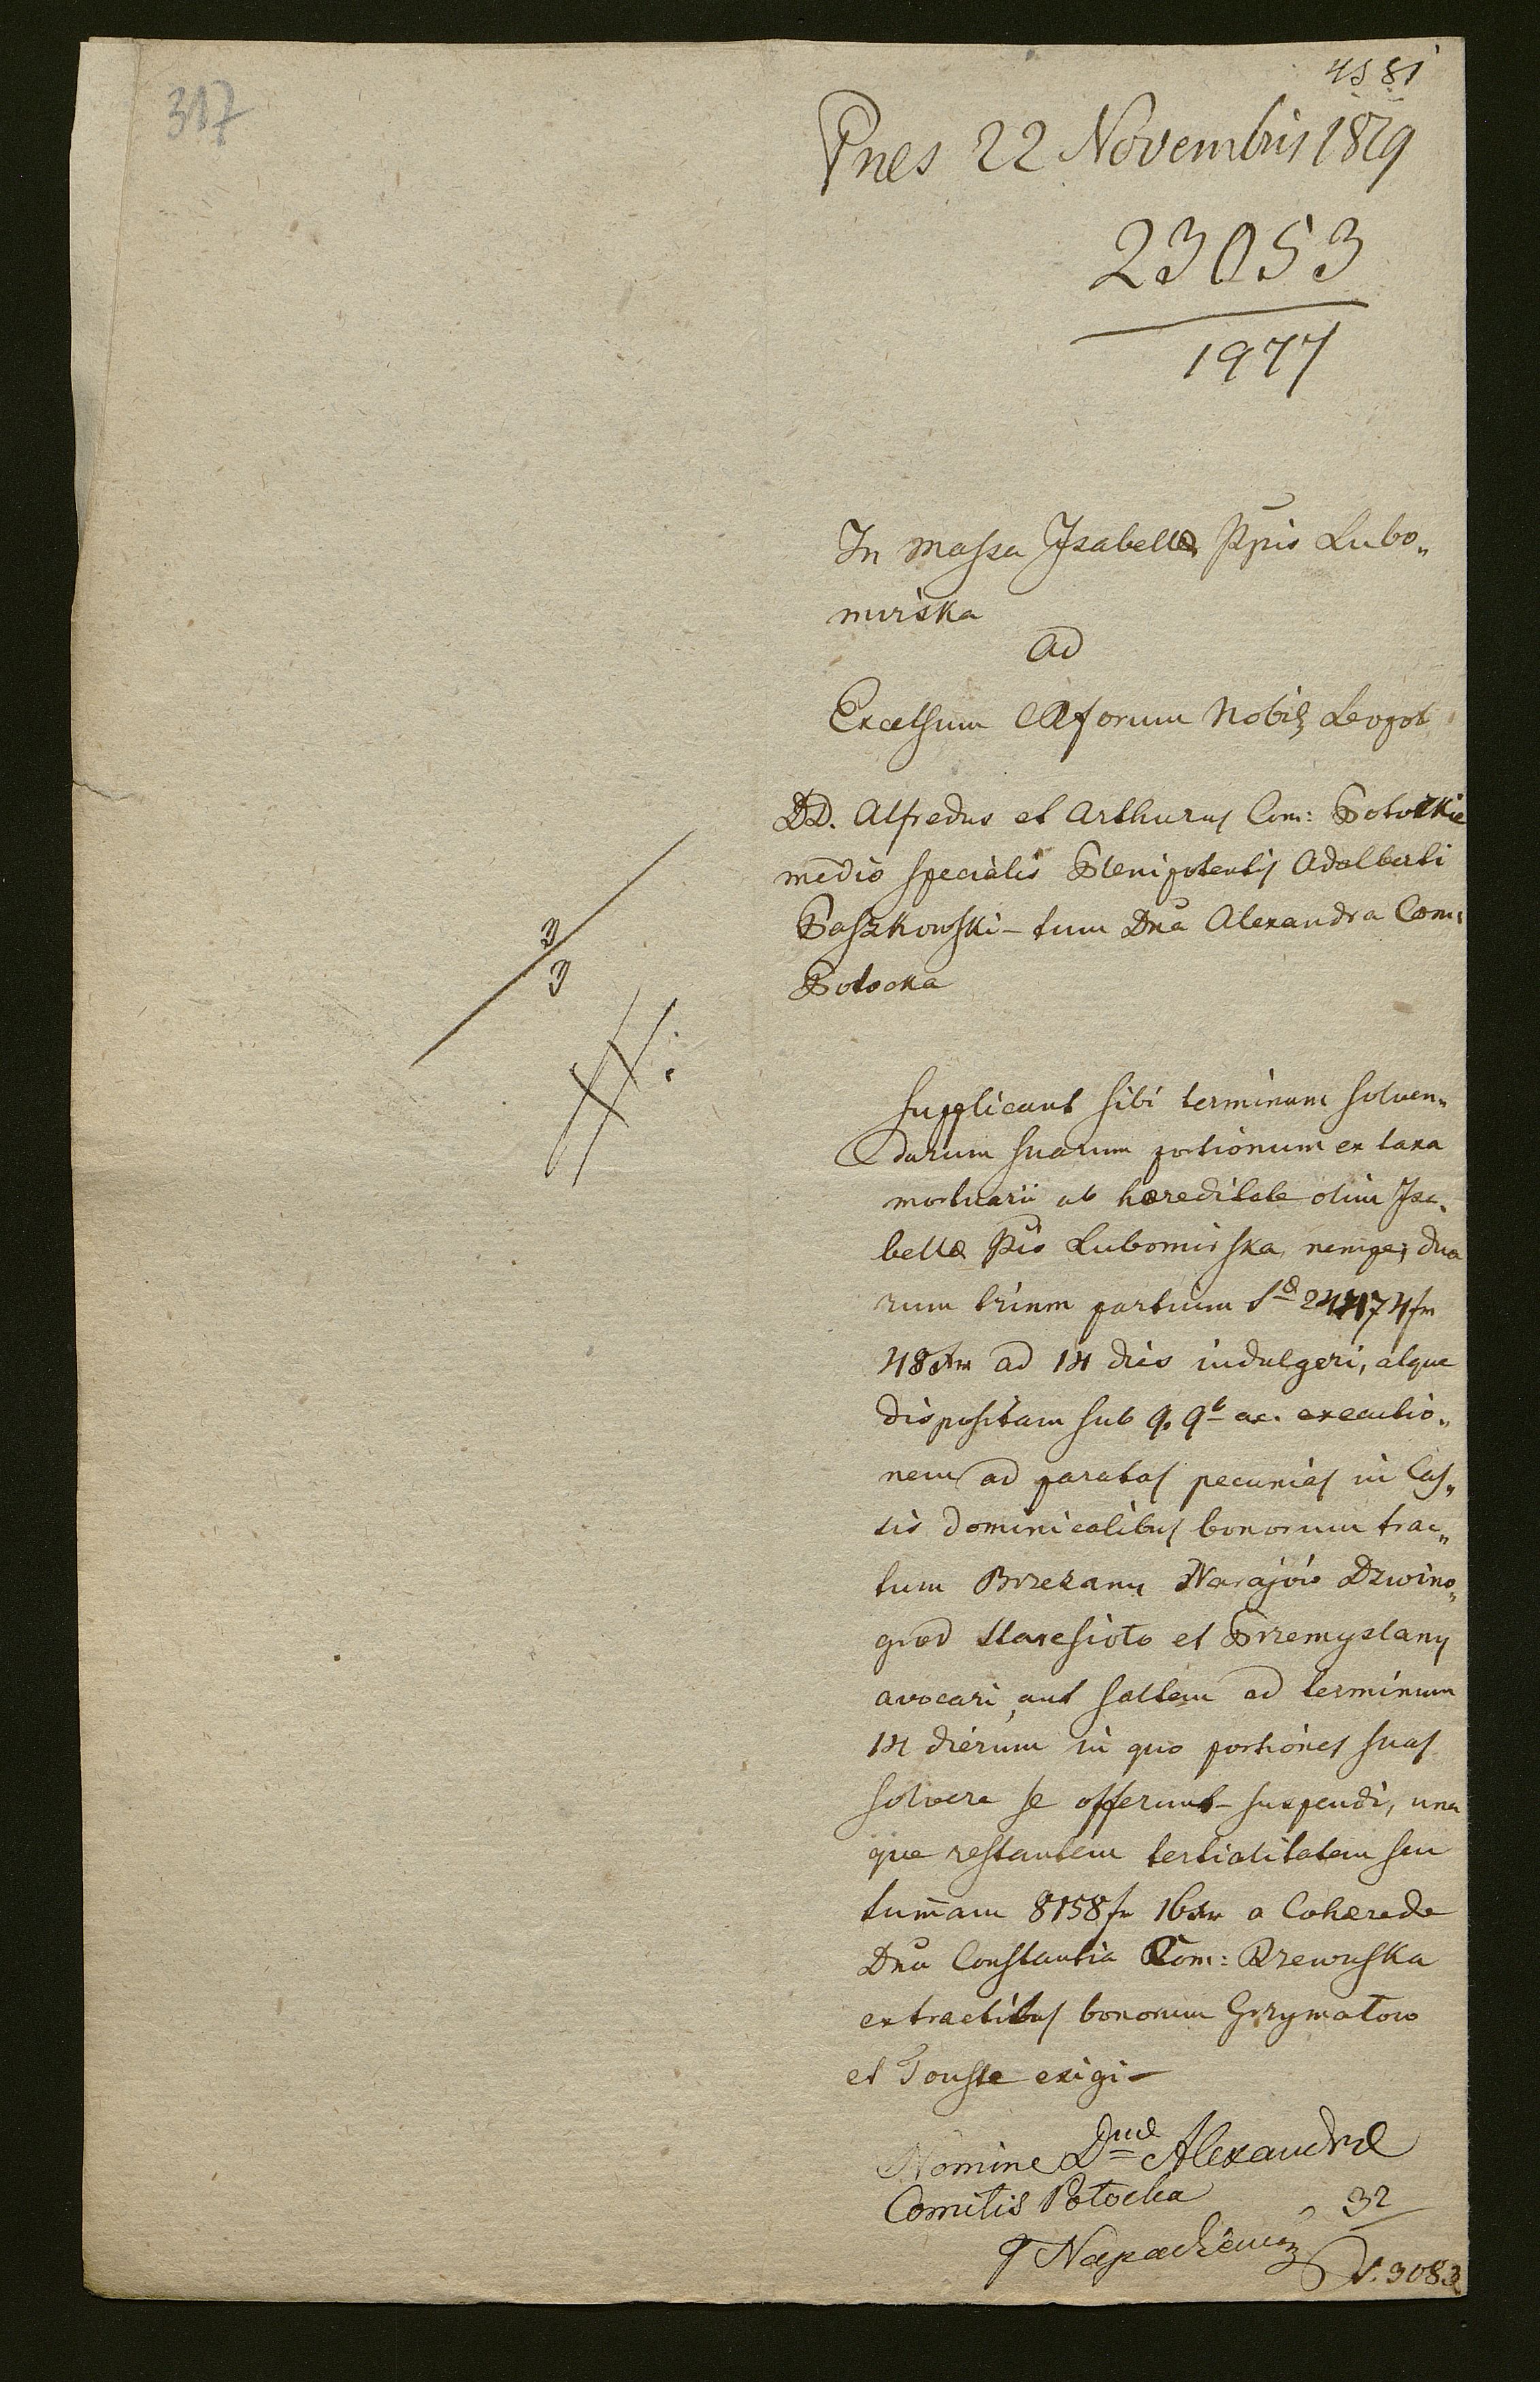 317
4581
Pnes 22 Novembris 1819
23053
1977
In massa Isabellæ Ppis Lubo„
mirska
ad
Excelsum CR forum Nobil Leopol
DD. Alfredus et Arthurus Com: Potockie
medio specialis Plenipotentis Adalberti
Paszkowski – tum Dna Alexandra Com:
Potocka
3
3
supplicant sibi terminum solven„
darum suarum portionum ex taxa
mortuarii ab hæreditate olim Isa„
bellæ Pis Lubomirska, nempe; dua
rum trium partium
48 xr ad 14 dies indulgeri, atque
dispositam sub executio„
nem ad paratas pecunias in Cas„
sis dominicalibus bonorum trac„
tum Brzezany Narajów Dzwino„
gród Staresioło et Przemyslany
avocari, aut saltem ad terminum
14 dierum in quo portiones suas
solvere se offerunt – suspendi, una
que restantem tertialitatem seu
sum̄am 8158 fr 16 xr a Cohærede
Dna Constantia Com: Rzewuska
ex tractibus bonorum Grzymałow
et Touste exigi –
Nomine Dnæ Alexandræ
Comitis Potocka
32
3083